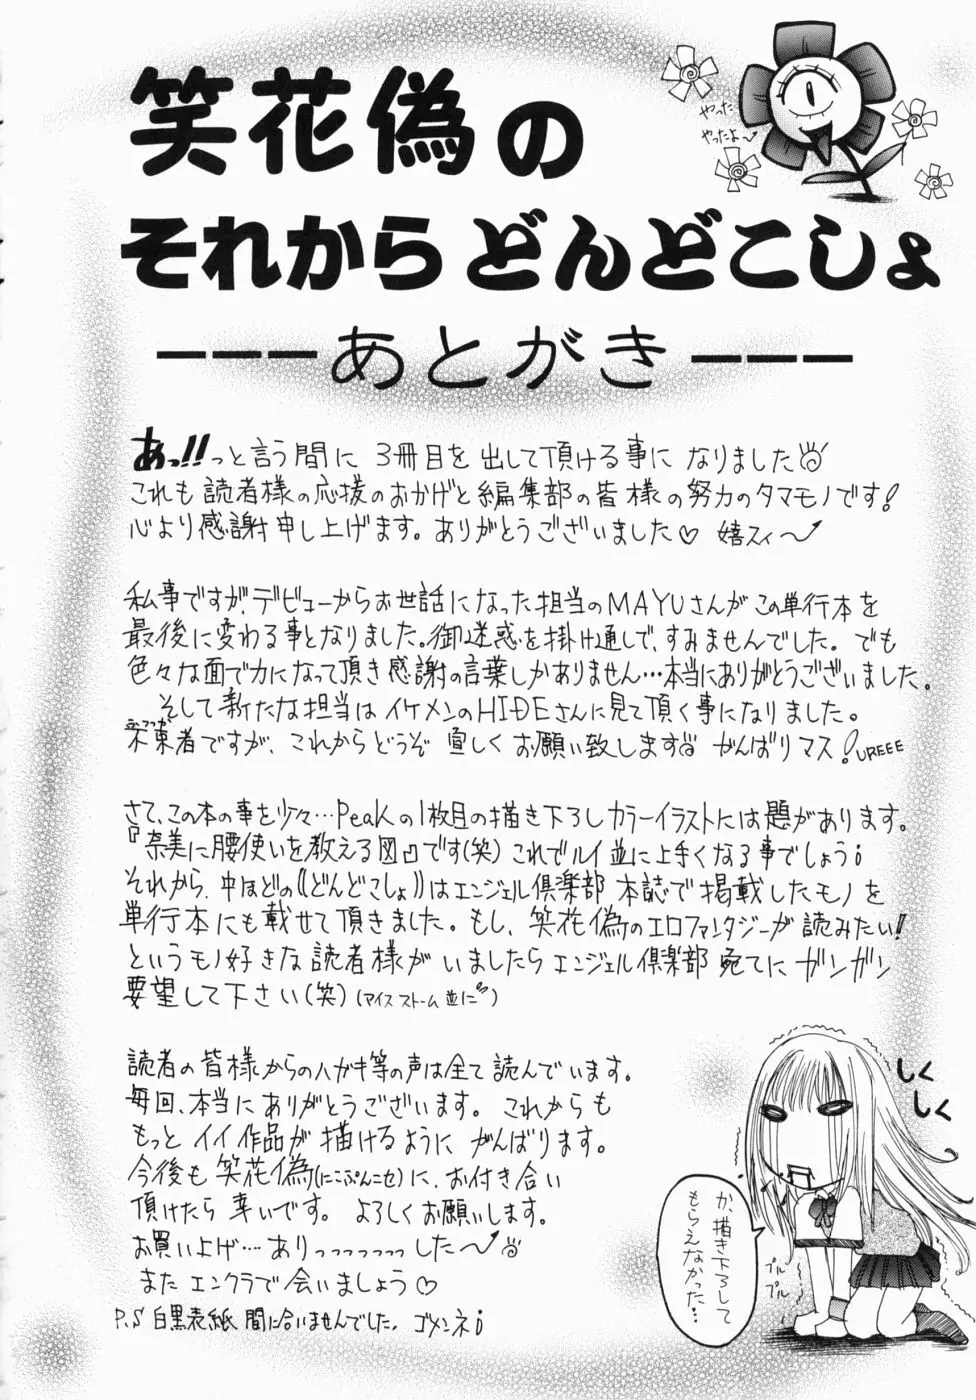 笑花偽の
やったー
やったよ〜
それからどんどこしょ
---あとがき---
あっ!!っと言う間に 3冊目を出して頂ける事に なりました
これも読者様の応援のおかげと編集部の皆様の努力のタマモノです!
心より感謝申し上げます。ありがとうございました♡ 嬉スィ〜
私事ですが、デビューからお世話になった担当のMAYUさんがこの単行本を
最後に変わる事となりました。御迷惑を掛け通しで、すみませんでした。でも
色々な面で力になって頂き感謝の言葉しかありません…本当にありがとうございました。
そして新たな担当はイケメンのHIDEさんに見て頂く事になりました。
不束者ですが、これからどうぞ宜しくお願い致します がんばりマス!UREEE
さて、この本の事を少々…Peakの1枚目の描き下ろしカラーイラストには題があります。
『奈美に腰使いを教える図』です(笑) これでルイ並に上手くなる事でしょう!
それから、中ほどの《どんどこしょ》はエンジェル倶楽部 本誌で掲載したモノを
単行本にも載せて頂きました。もし、笑花偽のエロファンタジーが読みたい!!
というモノ好きな読者様がいましたらエンジェル倶楽部 宛てに ガンガン
要望して下さい(笑)(マイス ストーム 並に)
読者の皆様からのハガキ等の声は全て読んでいます。
毎回、本当にありがとうございます。これからも
もっと イイ作品が描けるように がんばります。
今後も 笑花偽(にこぷんニセ)に、お付き合い
頂けたら 幸いです。よろしくお願いします。
お買い上げ…ありっっっっっっした〜
また エンクラで会いましょう♡
P.S 白黒表紙 間に合いませんでした。ゴメンネ!
しく
しく
か、描き下ろして
もらえなかった…
プル
プル